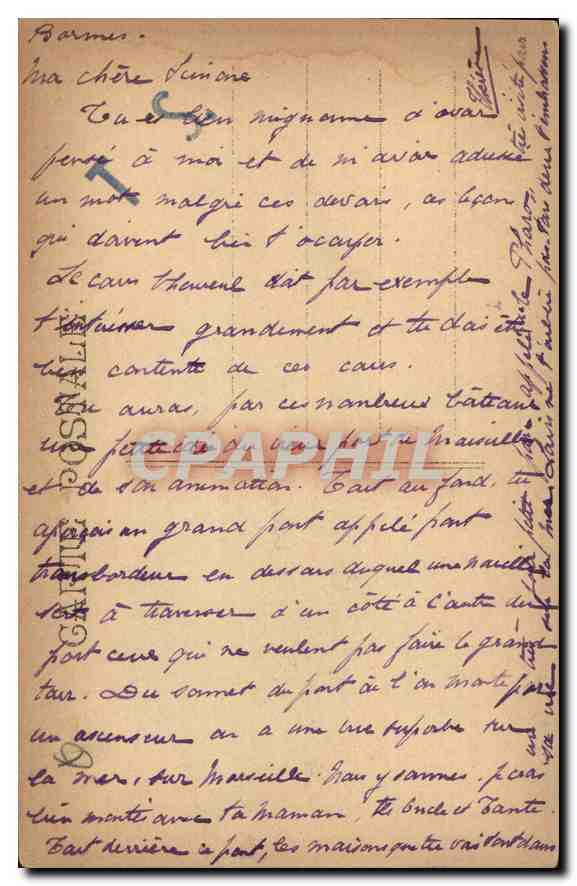 Bormes.
Ma chère Simone
Tu es bien mignonne d'avoir
pensé à moi et de m'avoir adressé
un mot malgré ces devoirs, ces leçons
qui doivent bien t'occuper.
Le cours Thouvenel doit par exemple
t'intéresser grandement et tu dois être
bien contente de ces cours.
Tu auras, par ces nombreux bâteaux
une petite idée du vieux port de Marseille
et de son animation. Tout au fond, tu
aperçois un grand pont appelé pont
transbordeur en dessous duquel une nacelle
sert à traverser d'un côté à l'autre du
port ceux qui ne veulent pas faire le grand
tour. Du sommet du pont où l'on monte par
un ascenseur on a une vue superbe sur
la mer, sur Marseille. Nous y sommes, je crois
bien montés avec ta Maman, tes Oncle et Tante.
Tout derrière ce pont, les maisons que tu vois sont dans
une très petite appelé le Pharo,
sa vue sur la mer. Louis ne t'oublie pas
CARTE POSTALE
T S
CPAPHIL